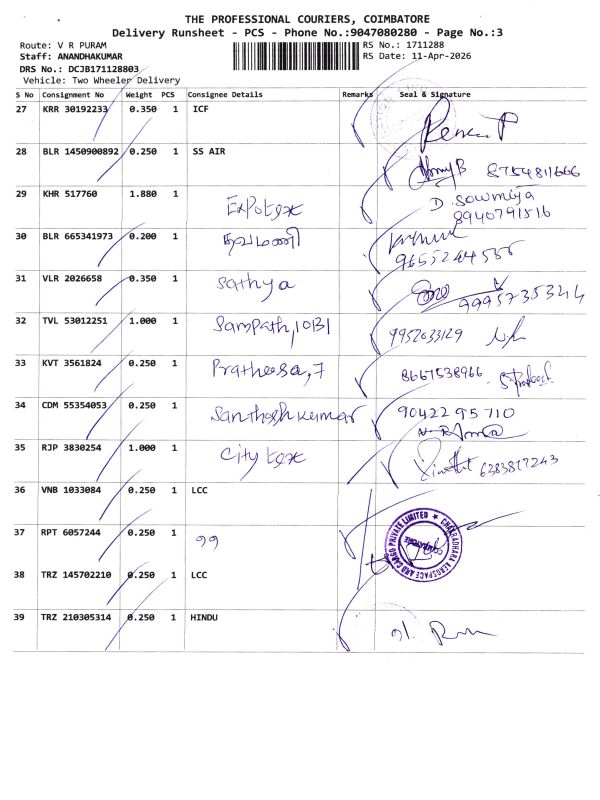 THE PROFESSIONAL COURIERS, COIMBATORE
Delivery Runsheet - PCS - Phone No.:9047080280 - Page No.:3
Route: V R PURAM
RS No.: 1711288
Staff: ANANDHAKUMAR
RS Date: 11-Apr-2026
DRS No.: DCJB171128803
Vehicle: Two Wheeler Delivery
S No Consignment No Weight PCS Consignee Details Remarks Seal & Signature
27 KRR 30192233 0.350 1 ICF
28 BLR 1450900892 0.250 1 SS AIR 8754811666
29 KHR 517760 1.880 1 Expotex D. Sowmiya
8940791516
30 BLR 665341973 0.200 1 தவமணி
31 VLR 2026658 0.350 1 Sathya
32 TVL 53012251 1.000 1 Sampath, 9952033129
33 KVT 3561824 0.250 1 Pratheesa, 7 8667538966
34 CDM 55354053 0.250 1 Santhosh kumar 9042295710
35 RJP 3830254 1.000 1 City tex
36 VNB 1033084 0.250 1 LCC
37 RPT 6057244 0.250 1 99
CHAKRADHARA AEROSPACE AND CARGO PRIVATE LIMITED
COIMBATORE
38 TRZ 145702210 0.250 1 LCC
39 TRZ 210305314 0.250 1 HINDU